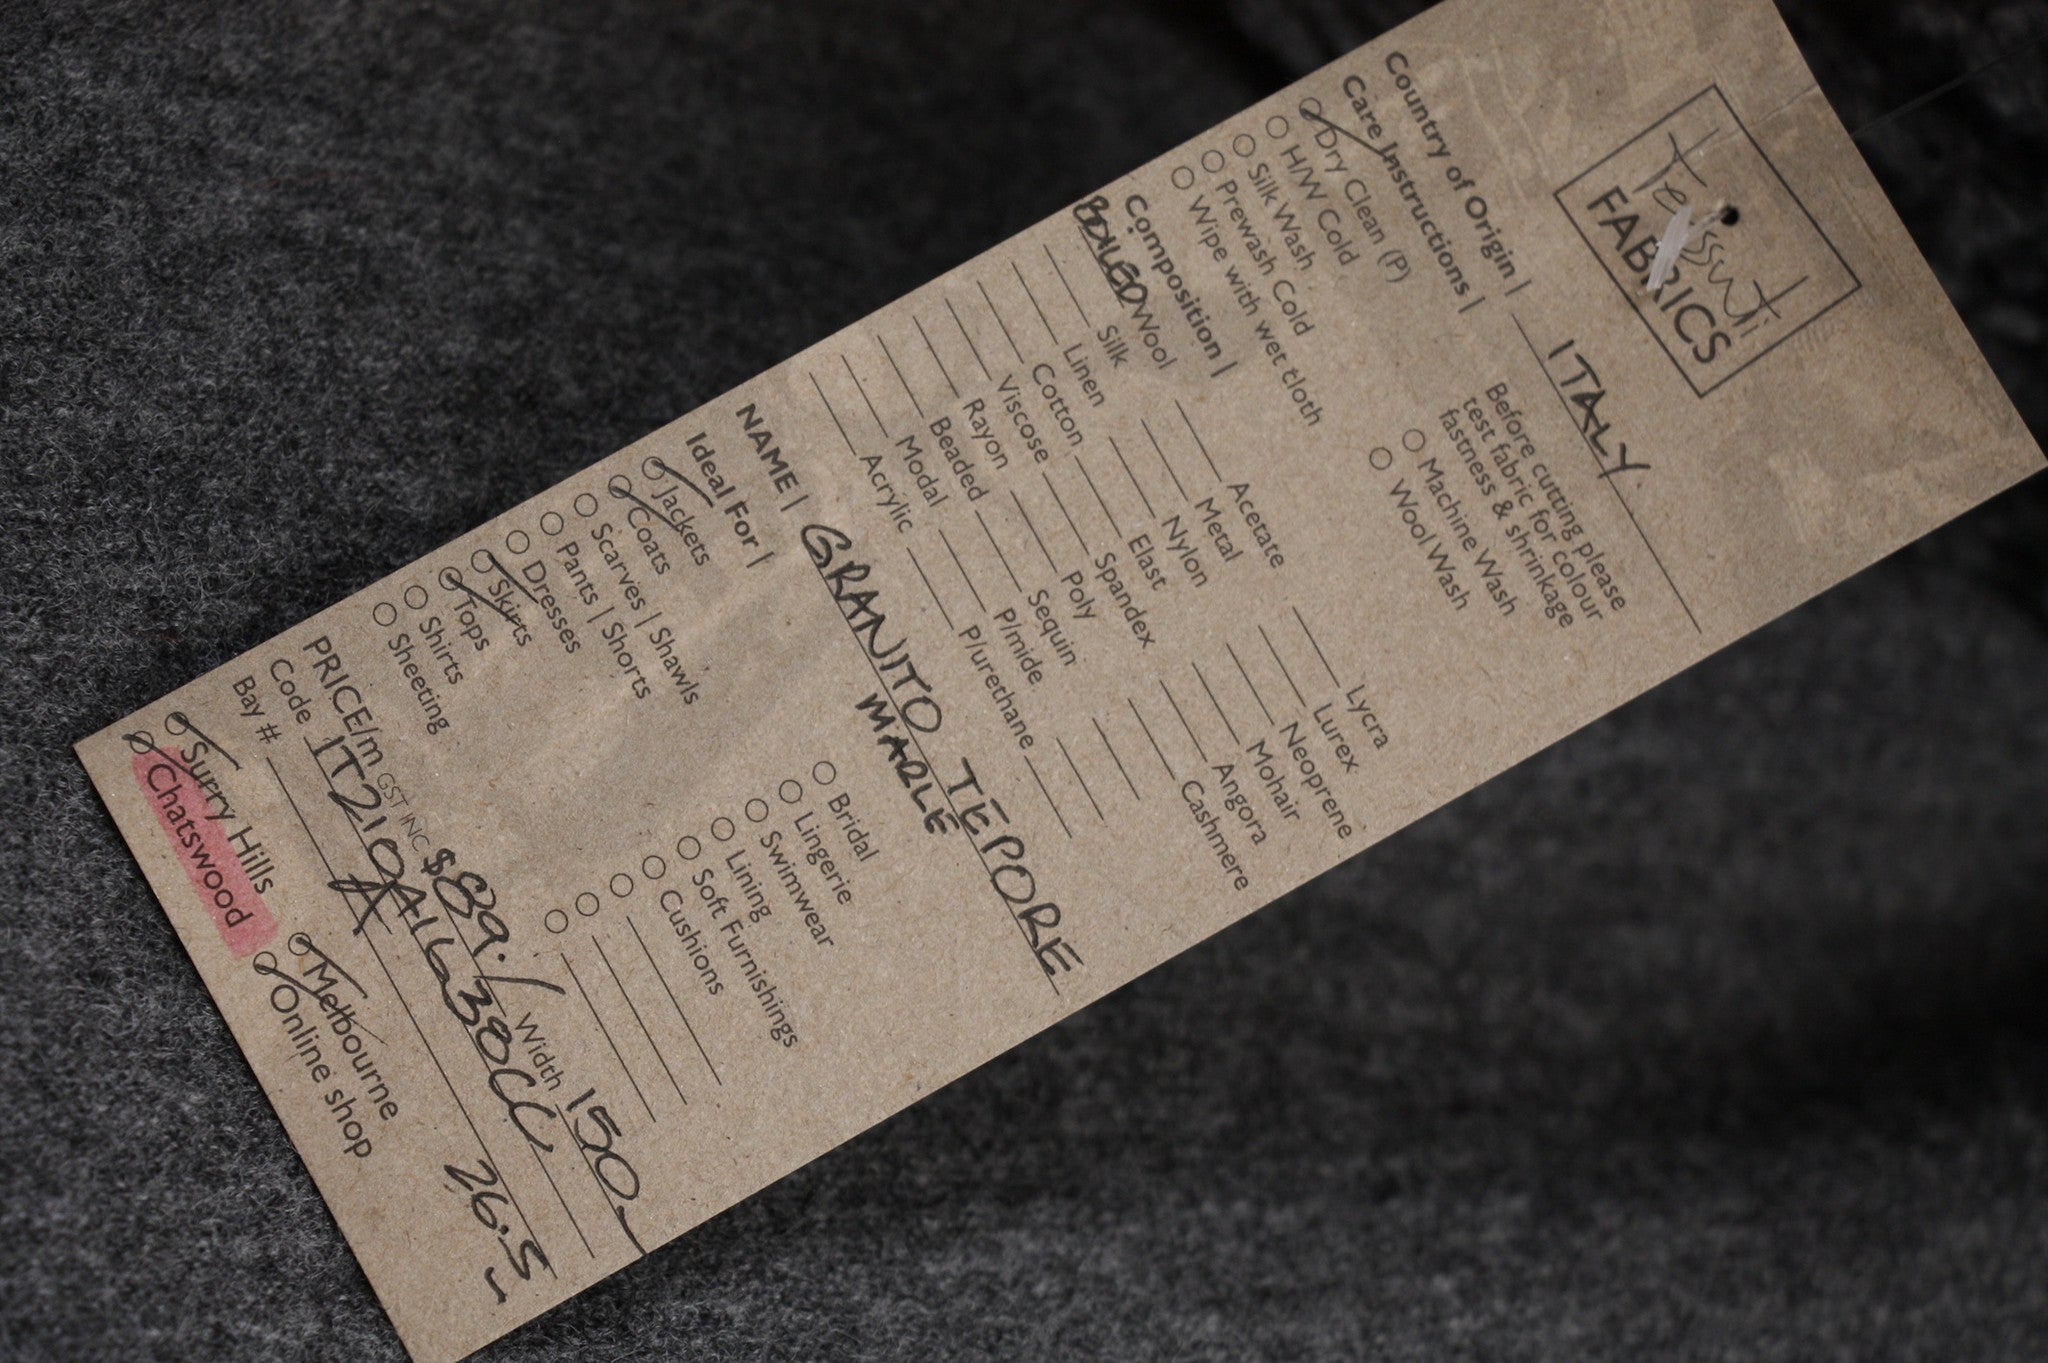 Tessuti
FABRICS
Country of Origin | ITALY.
Care Instructions |
Dry Clean (P)
H/W Cold
Silk Wash
Prewash Cold
Wipe with wet cloth
Before cutting please
test fabric for colour
fastness & shrinkage
Machine Wash
Wool Wash
Composition |
BOILED Wool
Silk
Linen
Cotton
Viscose
Rayon
Beaded
Modal
Acrylic
Acetate
Metal
Nylon
Elast
Spandex
Poly
Sequin
P/mide
P/urethane
Lycra
Lurex
Neoprene
Mohair
Angora
Cashmere
NAME | GRANITO TEPORE
MARLE
Ideal For |
Jackets
Coats
Scarves | Shawls
Pants | Shorts
Dresses
Skirts
Tops
Shirts
Sheeting
Bridal
Lingerie
Swimwear
Lining
Soft Furnishings
Cushions
PRICE/m GST INC $89./ Width 150
Code IT210A1638CC
Bay # A 26.5
Surry Hills Melbourne
Chatswood Online shop